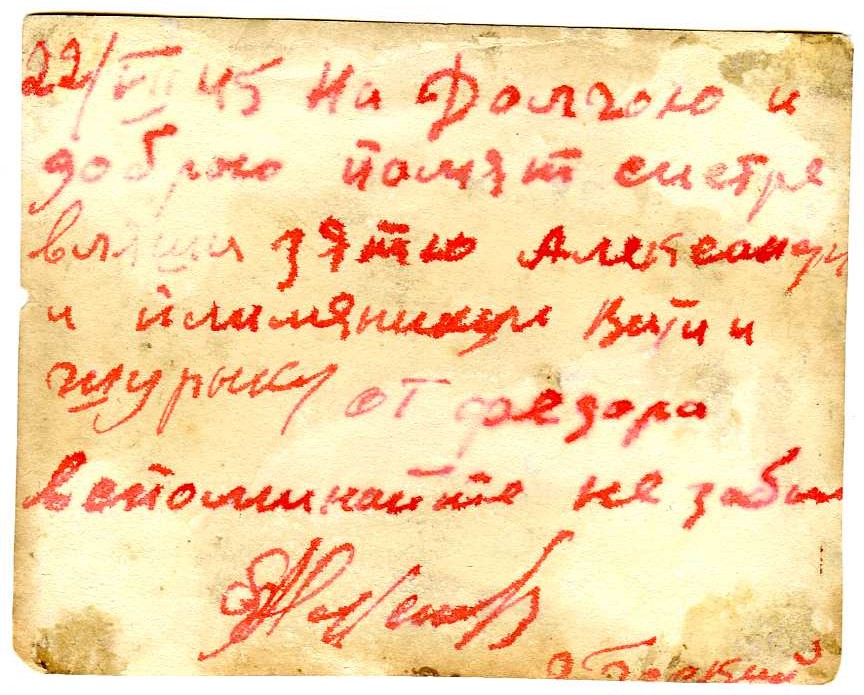 22/VII 45 На Долгою и
доброю помят систре
зятю Александр
и плимяникам Вити и
шурыку от федора
вспоминайте не забы